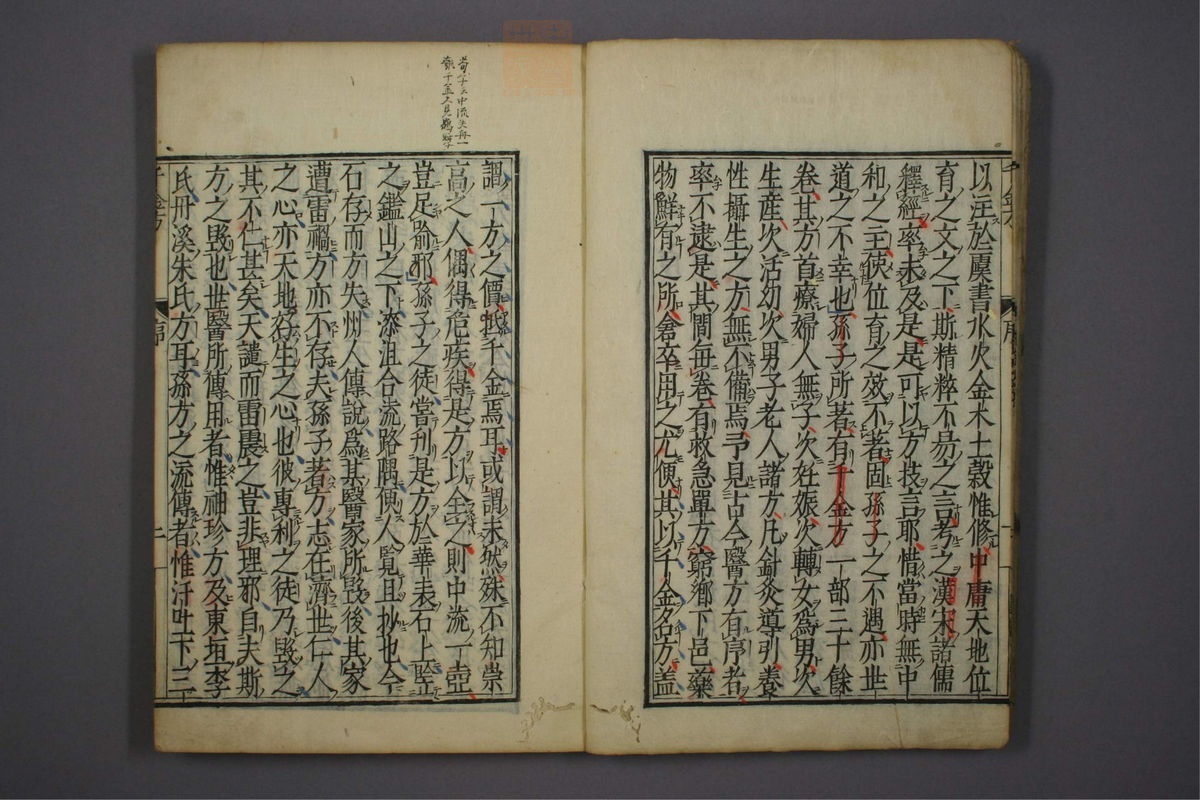 以注於虞書水火金木土穀惟修中庸天地位
育之文之下斯精粹不易之言考之漢宋諸儒
釋經率未及是是可以方技言耶惜當時無中
和之主使位育之效不著固孫子之不遇亦世
道之不幸也孫子所著有千金方一部三十餘
卷其方首療婦人無子次妊娠次轉女為男次
生產次活幼次男子老人諸方凡針灸導引養
性攝生之方無不備焉予見古今醫方有序者
率不逮是其間每卷有救急單方窮鄉下邑藥
物鮮有之所倉卒用之尤便其以千金名方蓋
謂一方之價抵千金焉耳或謂未然殊不知崇
高之人偶得危疾得是方以全之則中流一壺
豈足踰邪孫子之徒嘗刊是方於華表石上監
之鑑山之下漆沮合流路隅便人覧且抄也今
石存而方失州人傳說為其醫家所毀後其家
遭雷禍方亦不存夫孫子著方志在濟世石人
之心亦天地好生之心也彼專利之徒乃毀之
其不仁甚矣天譴而雷震之豈非理邪自夫斯
方之毀也世醫所傳用者惟袖珍方及東垣李
氏丹溪朱氏方耳孫方之流傳者惟汗吐下三
千金方
序
二